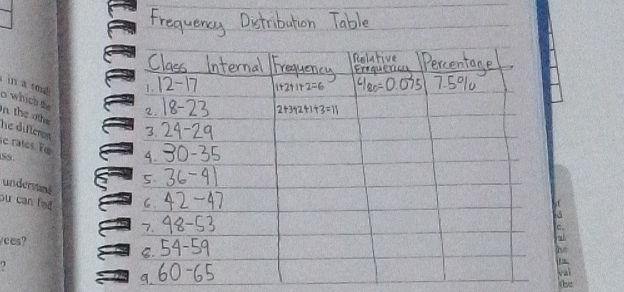 Frequency Distribution Table
Class Internal Frequency Relative Frequency Percentage
1. 12-17 1+2+1+2=6 6/80=0.075 7.5%
2. 18-23 2+3+2+1+3=11
3. 24-29
4. 30-35
5. 36-41
6. 42-47
7. 48-53
8. 54-59
9. 60-65
in a small
o which the
in the othe
he different
ss.
understand
ou can find
?